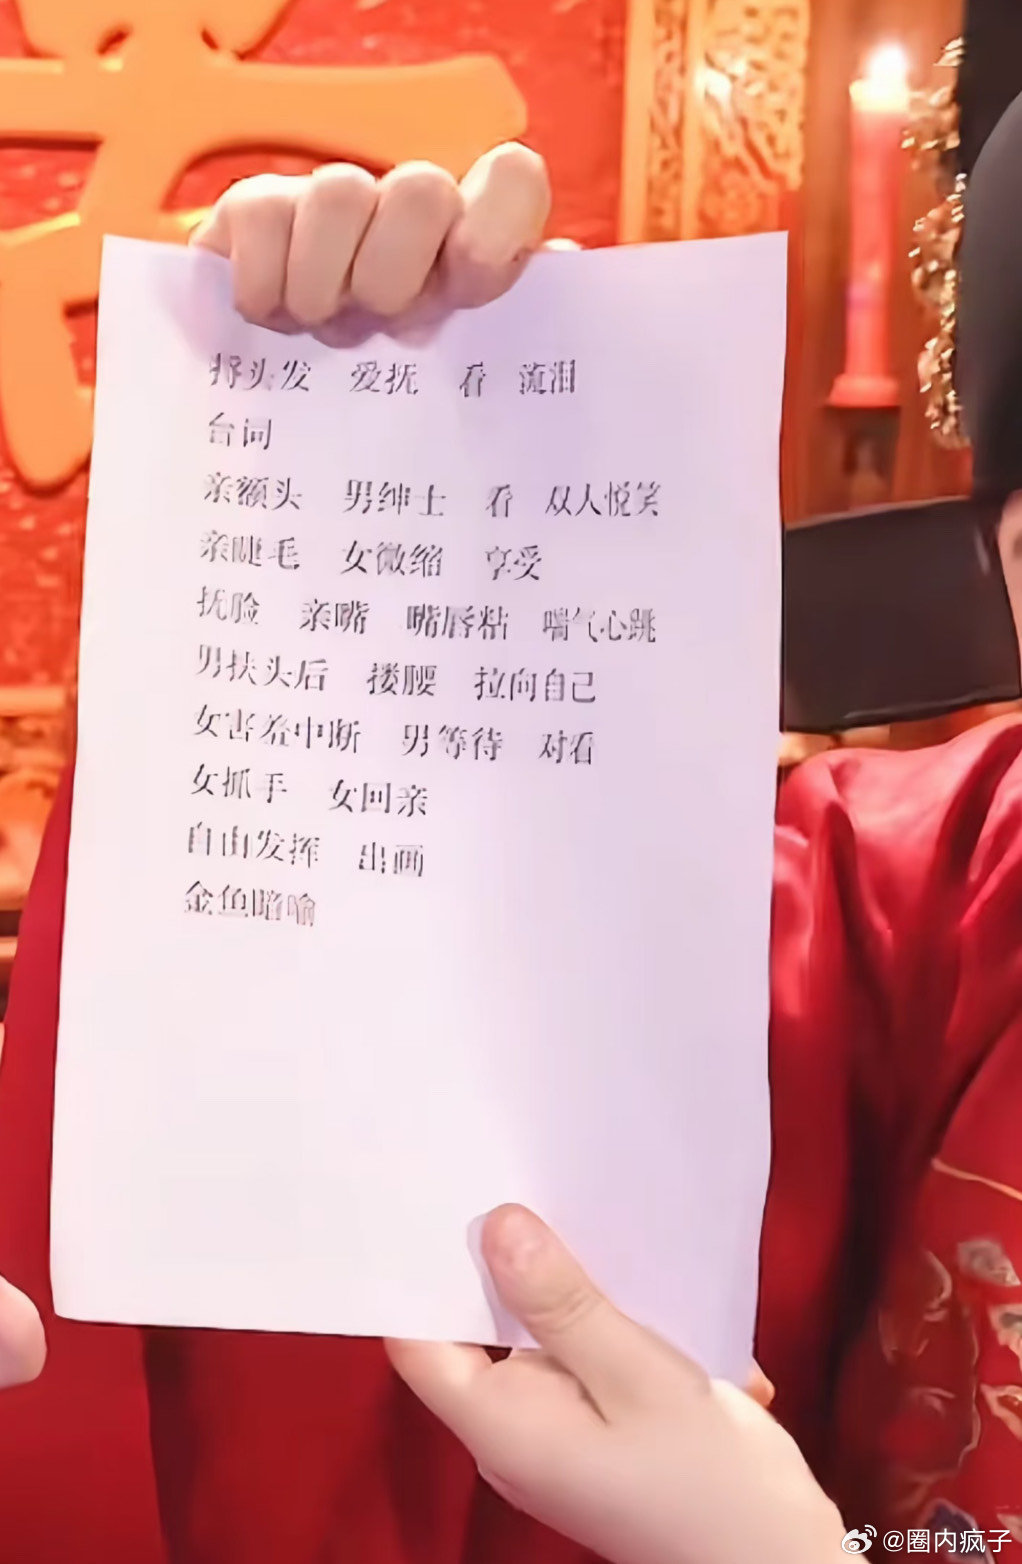 捋头发 爱抚 看 流泪
台词
亲额头 男绅士 看 众人悦笑
亲睫毛 女微缩 享受
抚脸 亲嘴 嘴唇粘 喘气心跳
男扶头后 搂腰 拉向自己
女害羞中断 男等待 对看
女抓手 女回亲
自由发挥 出画
金鱼暗喻
@圈内疯子